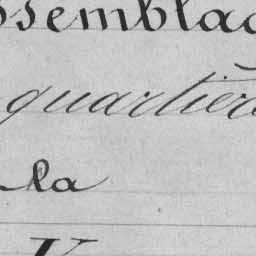 ssemblac
quartier
la